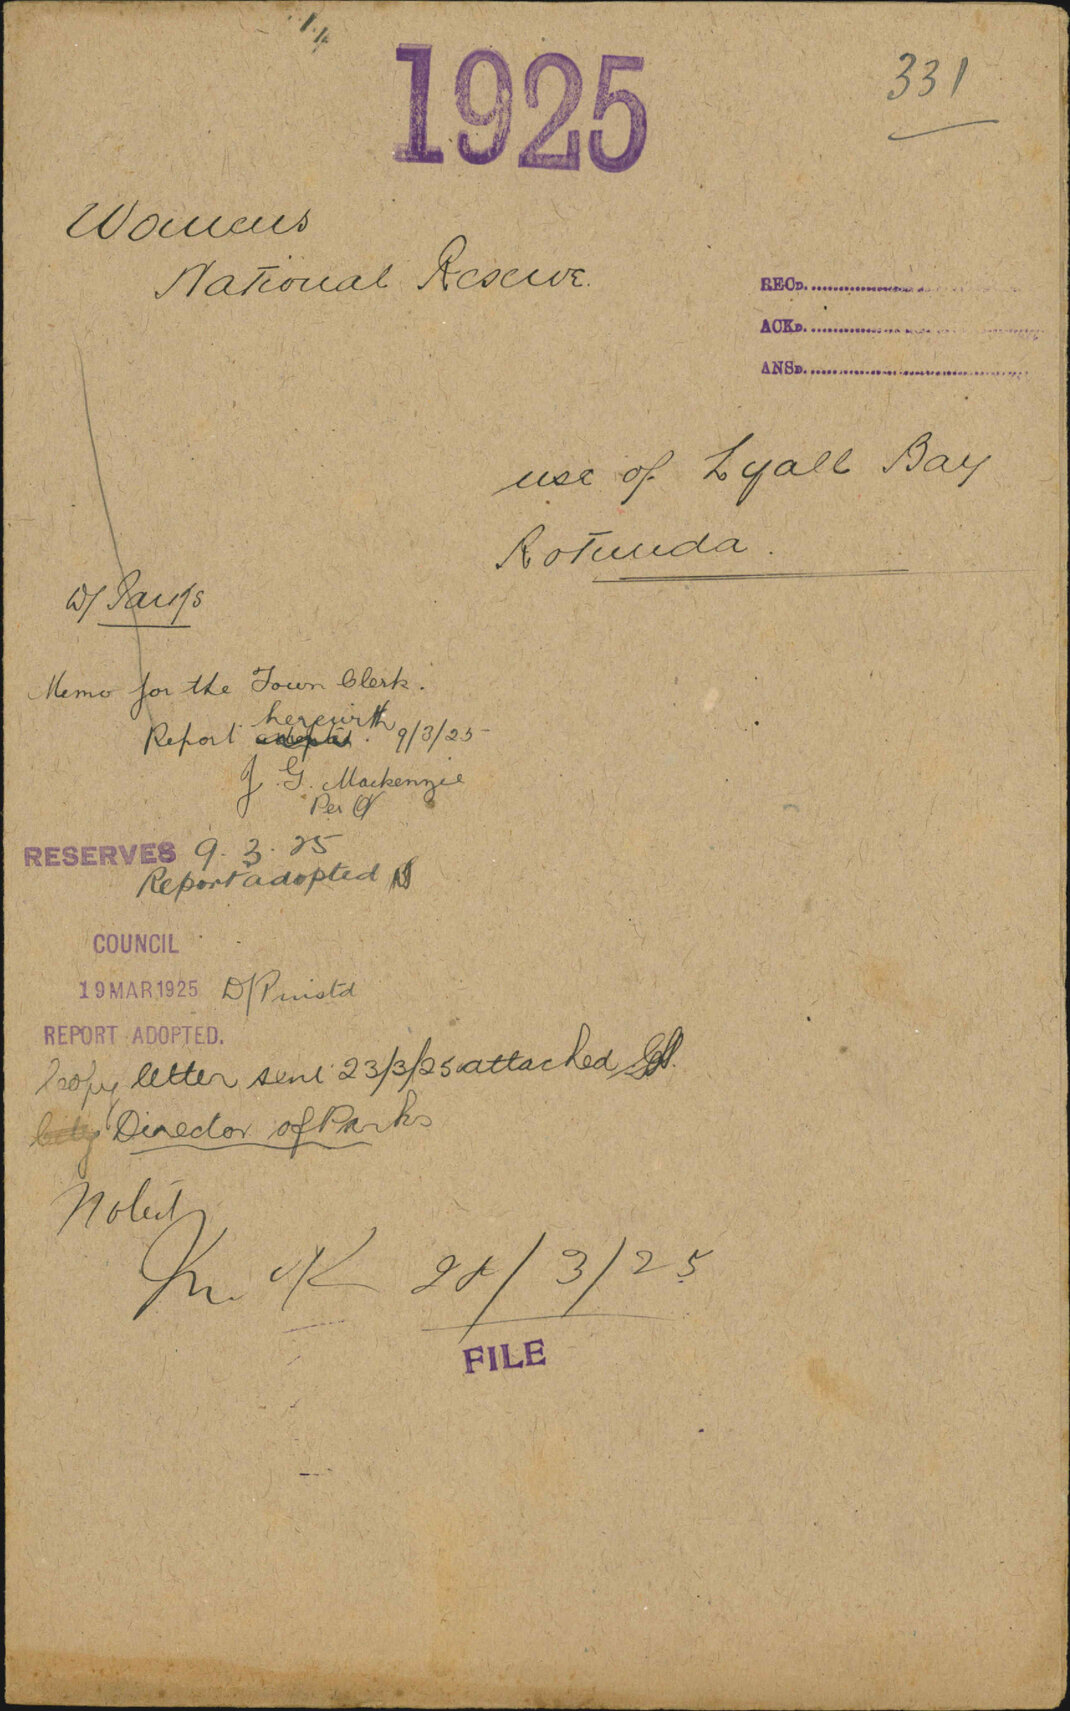 1925
331
Womens
National Reserve.
RECD.
ACKD.
ANSD.
use of Lyall Bay
Rotunda.
D/ Parks
Memo for the Town Clerk.
herewith
Report 9/3/25
J. G. Mackenzie
Per
RESERVES 9.3.25
Report adopted
COUNCIL
19 MAR 1925 D/P
REPORT ADOPTED.
Copy letter sent 23/3/25 attached
Director of Parks
Noted
/3/25
FILE